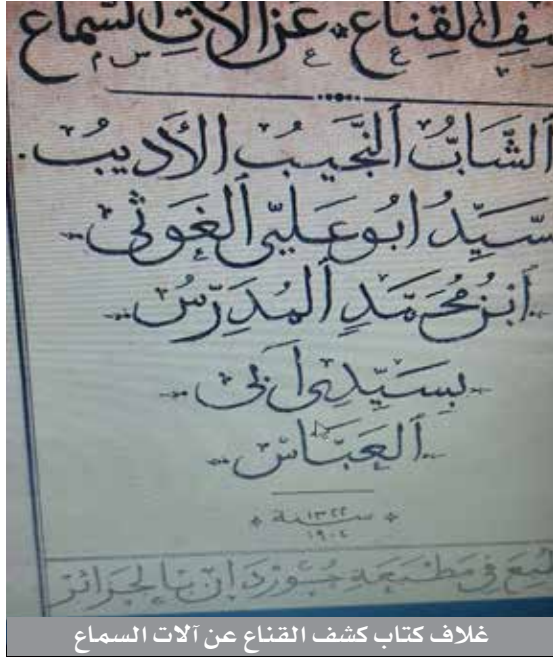 كشف القناع عن آلات السماع
الشَّابُّ النَّجِيبُ الأَدِيبُ
سَيِّدُ ابُو عَلِيّ الغَوْثِي
ابْنُ مُحَمَّدٍ المُدَرِّسُ
بِسَيِّدِي أَبِي
العَبَّاسْ
سنة ١٣٢٢
١٩٠٤
طبع في مطبعة جوردان بالجزائر
غلاف كتاب كشف القناع عن آلات السماع